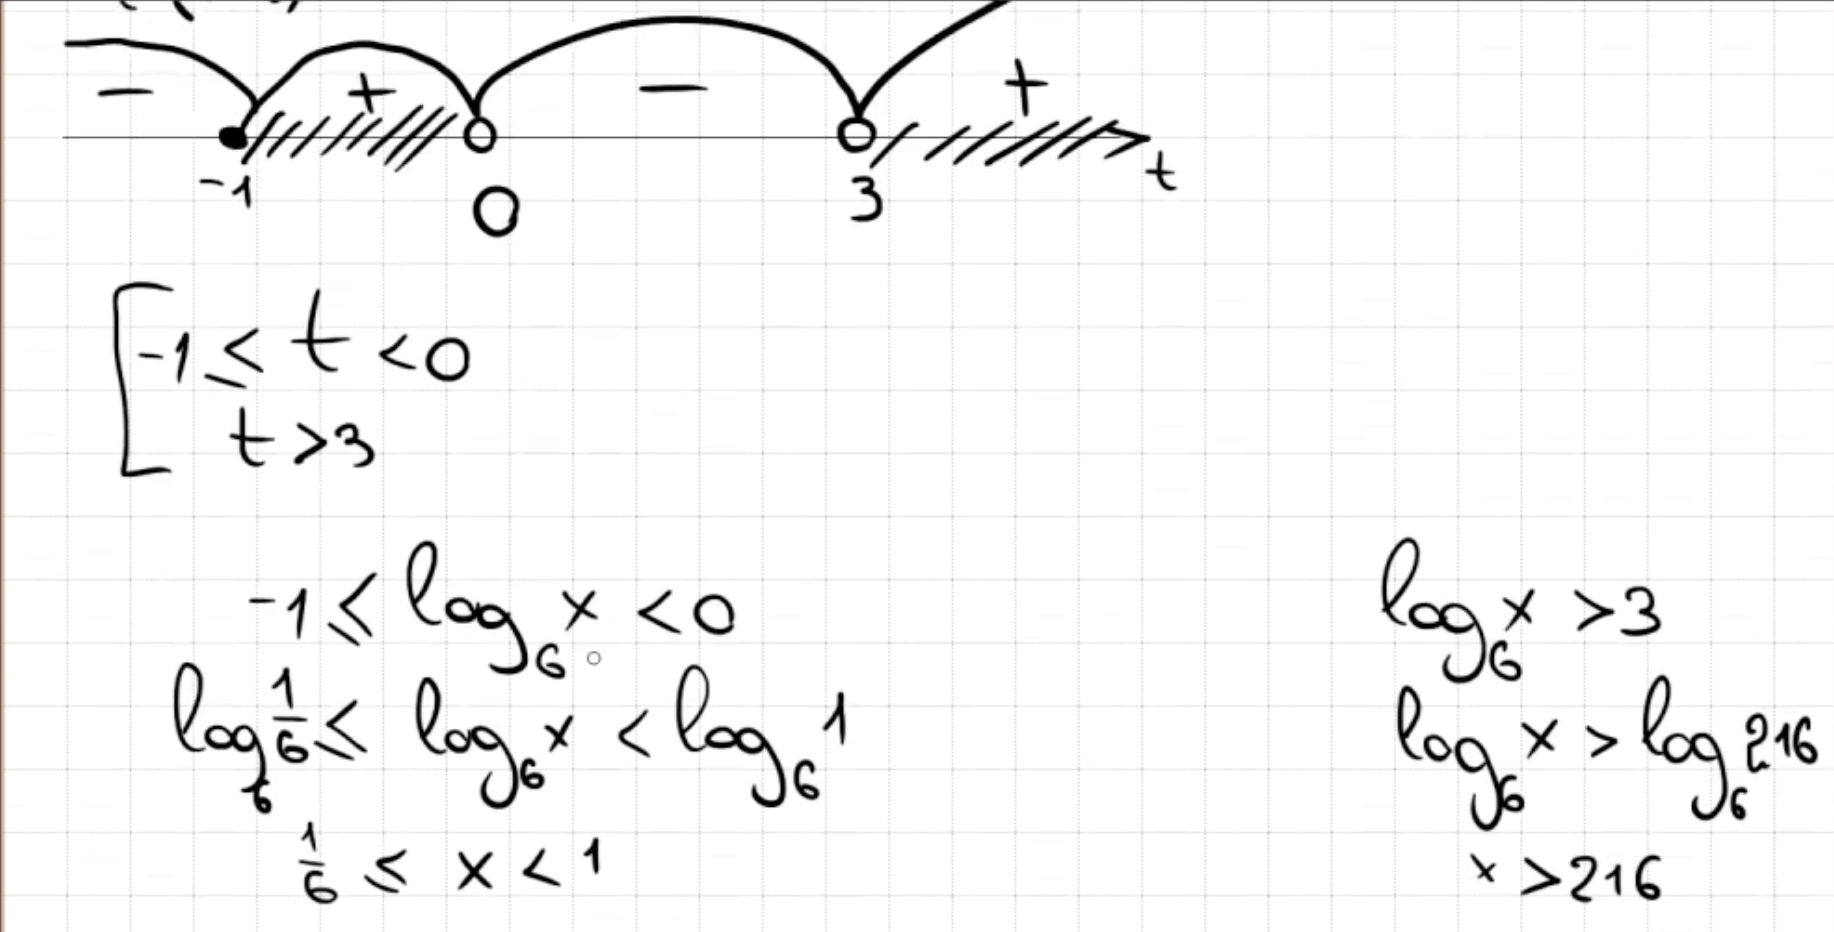 − + − +
-1 0 3 t
-1 ≤ t < 0
t > 3
-1 ≤ log₆ x < 0
log₆ 1/6 ≤ log₆ x < log₆ 1
1/6 ≤ x < 1
log₆ x > 3
log₆ x > log₆ 216
x > 216